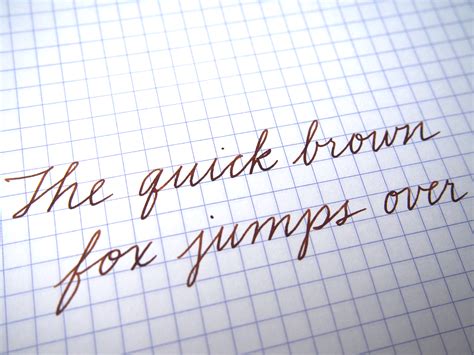 The quick brown
fox jumps over